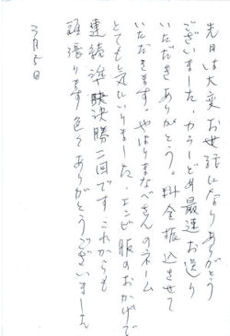 先日は大変お世話になりありがとう
ございました。カラーどめ最速お送り
いただきありがとう。料金振込させて
いただきます。やはりまなべさんのネーム
とても気にいりました。エンビ服のおかげで
連続準決勝二回です これからも
頑張ります 色々ありがとうございました
3月5日